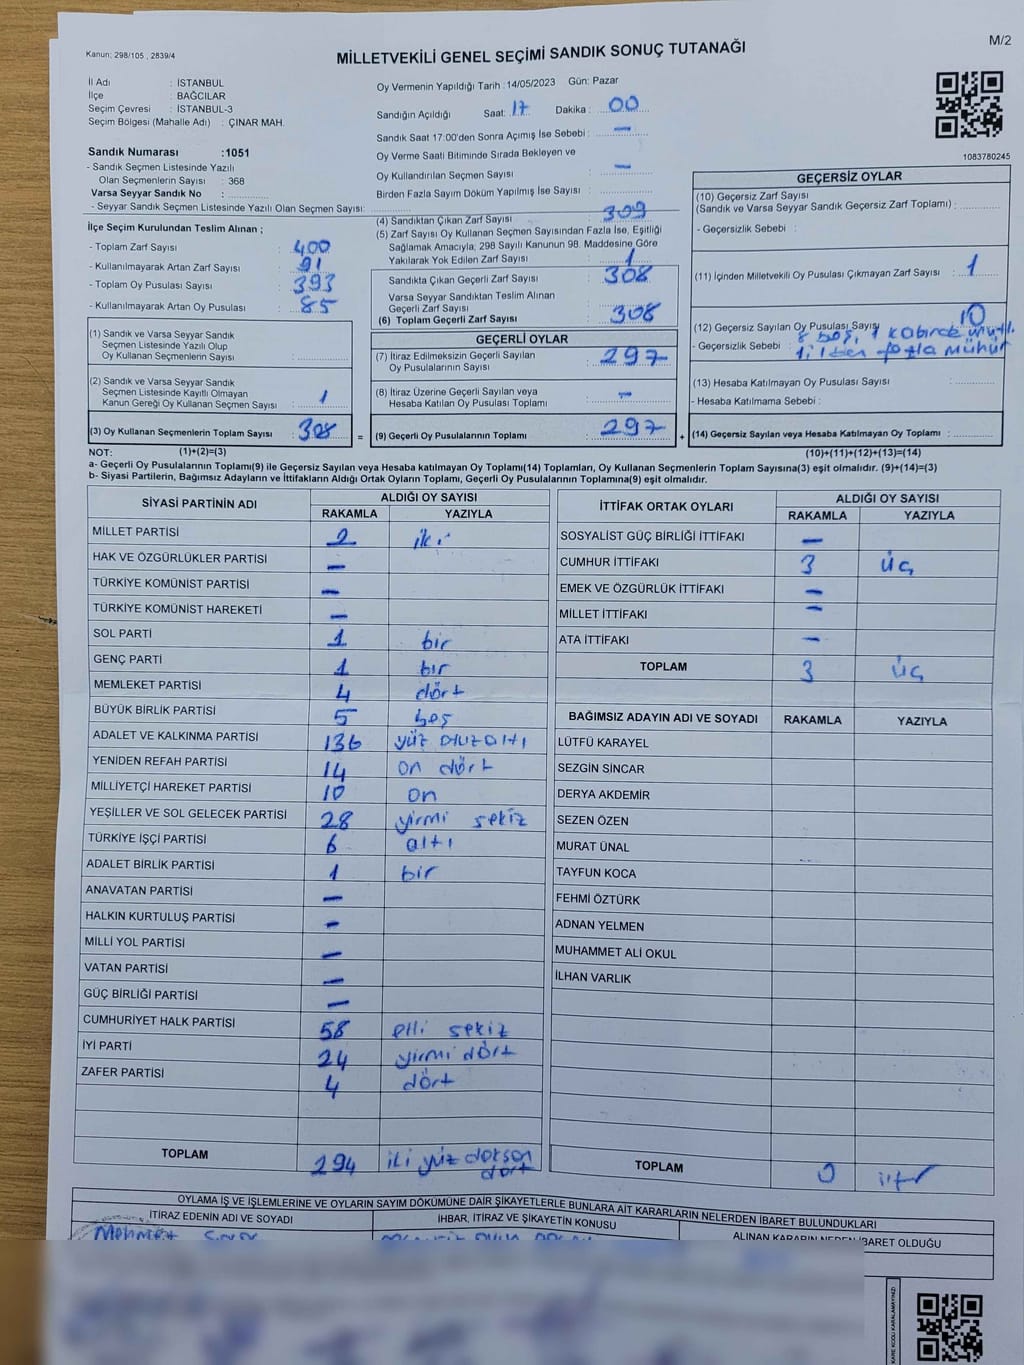 Kanun: 298/105 , 2839/4
MİLLETVEKİLİ GENEL SEÇİMİ SANDIK SONUÇ TUTANAĞI
M/2
İl Adı : İSTANBUL
İlçe : BAĞCILAR
Seçim Çevresi : İSTANBUL-3
Seçim Bölgesi (Mahalle Adı) : ÇINAR MAH.
Sandık Numarası :1051
- Sandık Seçmen Listesinde Yazılı
Olan Seçmenlerin Sayısı : 368
Varsa Seyyar Sandık No :
- Seyyar Sandık Seçmen Listesinde Yazılı Olan Seçmen Sayısı:
Oy Vermenin Yapıldığı Tarih :14/05/2023 Gün: Pazar
Sandığın Açıldığı Saat: 17 Dakika : 00
Sandık Saat 17:00'den Sonra Açımış İse Sebebi : —
Oy Verme Saati Bitiminde Sırada Bekleyen ve
Oy Kullandırılan Seçmen Sayısı : —
Birden Fazla Sayım Döküm Yapılmış İse Sayısı :
1083780245
İlçe Seçim Kurulundan Teslim Alınan ;
- Toplam Zarf Sayısı : 400
- Kullanılmayarak Artan Zarf Sayısı : 91
- Toplam Oy Pusulası Sayısı : 393
- Kullanılmayarak Artan Oy Pusulası : 85
(1) Sandık ve Varsa Seyyar Sandık
Seçmen Listesinde Yazılı Olup
Oy Kullanan Seçmen Sayısı :
(2) Sandık ve Varsa Seyyar Sandık
Seçmen Listesinde Kayıtlı Olmayan
Kanun Gereği Oy Kullanan Seçmen Sayısı : 1
(3) Oy Kullanan Seçmenlerin Toplam Sayısı : 308
(4) Sandıktan Çıkan Zarf Sayısı : 309
(5) Zarf Sayısı Oy Kullanan Seçmen Sayısından Fazla İse, Eşitliği
Sağlamak Amacıyla, 298 Sayılı Kanunun 98. Maddesine Göre
Yakılarak Yok Edilen Zarf Sayısı : 1
Sandıkta Çıkan Geçerli Zarf Sayısı : 308
Varsa Seyyar Sandıktan Teslim Alınan
Geçerli Zarf Sayısı :
(6) Toplam Geçerli Zarf Sayısı : 308
GEÇERLİ OYLAR
(7) İtiraz Edilmeksizin Geçerli Sayılan
Oy Pusulalarının Sayısı : 297
(8) İtiraz Üzerine Geçerli Sayılan veya
Hesaba Katılan Oy Pusulası Toplamı : —
= (9) Geçerli Oy Pusulalarının Toplamı : 297 +
GEÇERSİZ OYLAR
(10) Geçersiz Zarf Sayısı
(Sandık ve Varsa Seyyar Sandık Geçersiz Zarf Toplamı) :
- Geçersizlik Sebebi :
(11) İçinden Milletvekili Oy Pusulası Çıkmayan Zarf Sayısı : 1
(12) Geçersiz Sayılan Oy Pusulası Sayısı 10
- Geçersizlik Sebebi : 8 boş, 1
fazla mühür
(13) Hesaba Katılmayan Oy Pusulası Sayısı :
- Hesaba Katılmama Sebebi :
(14) Geçersiz Sayılan veya Hesaba Katılmayan Oy Toplamı :
NOT: (1)+(2)=(3) (10)+(11)+(12)+(13)=(14)
a- Geçerli Oy Pusulalarının Toplamı(9) ile Geçersiz Sayılan veya Hesaba katılmayan Oy Toplamı(14) Toplamları, Oy Kullanan Seçmenlerin Toplam Sayısına(3) eşit olmalıdır. (9)+(14)=(3)
b- Siyasi Partilerin, Bağımsız Adayların ve İttifakların Aldığı Ortak Oyların Toplamı, Geçerli Oy Pusulalarının Toplamına(9) eşit olmalıdır.
SİYASİ PARTİNİN ADI ALDIĞI OY SAYISI
RAKAMLA YAZIYLA
MİLLET PARTİSİ 2 iki
HAK VE ÖZGÜRLÜKLER PARTİSİ —
TÜRKİYE KOMÜNİST PARTİSİ —
TÜRKİYE KOMÜNİST HAREKETİ —
SOL PARTİ 1 bir
GENÇ PARTİ 1 bir
MEMLEKET PARTİSİ 4 dört
BÜYÜK BİRLİK PARTİSİ 5 beş
ADALET VE KALKINMA PARTİSİ 136 yüz otuzaltı
YENİDEN REFAH PARTİSİ 14 on dört
MİLLİYETÇİ HAREKET PARTİSİ 10 on
YEŞİLLER VE SOL GELECEK PARTİSİ 28 yirmi sekiz
TÜRKİYE İŞÇİ PARTİSİ 6 altı
ADALET BİRLİK PARTİSİ 1 bir
ANAVATAN PARTİSİ —
HALKIN KURTULUŞ PARTİSİ —
MİLLİ YOL PARTİSİ —
VATAN PARTİSİ —
GÜÇ BİRLİĞİ PARTİSİ —
CUMHURİYET HALK PARTİSİ 58 elli sekiz
İYİ PARTİ 24 yirmi dört
ZAFER PARTİSİ 4 dört
TOPLAM 294 iki yüz doksan
dört
İTTİFAK ORTAK OYLARI ALDIĞI OY SAYISI
RAKAMLA YAZIYLA
SOSYALİST GÜÇ BİRLİĞİ İTTİFAKI —
CUMHUR İTTİFAKI 3 üç
EMEK VE ÖZGÜRLÜK İTTİFAKI —
MİLLET İTTİFAKI —
ATA İTTİFAKI —
TOPLAM 3 üç
BAĞIMSIZ ADAYIN ADI VE SOYADI RAKAMLA YAZIYLA
LÜTFÜ KARAYEL
SEZGİN SİNCAR
DERYA AKDEMİR
SEZEN ÖZEN
MURAT ÜNAL
TAYFUN KOCA
FEHMİ ÖZTÜRK
ADNAN YELMEN
MUHAMMET ALİ OKUL
İLHAN VARLIK
TOPLAM 0
OYLAMA İŞ VE İŞLEMLERİNE VE OYLARIN SAYIM DÖKÜMÜNE DAİR ŞİKAYETLERLE BUNLARA AİT KARARLARIN NELERDEN İBARET BULUNDUKLARI
İTİRAZ EDENİN ADI VE SOYADI İHBAR, İTİRAZ VE ŞİKAYETİN KONUSU ALINAN KARARIN NEDEN İBARET OLDUĞU
Mehmet